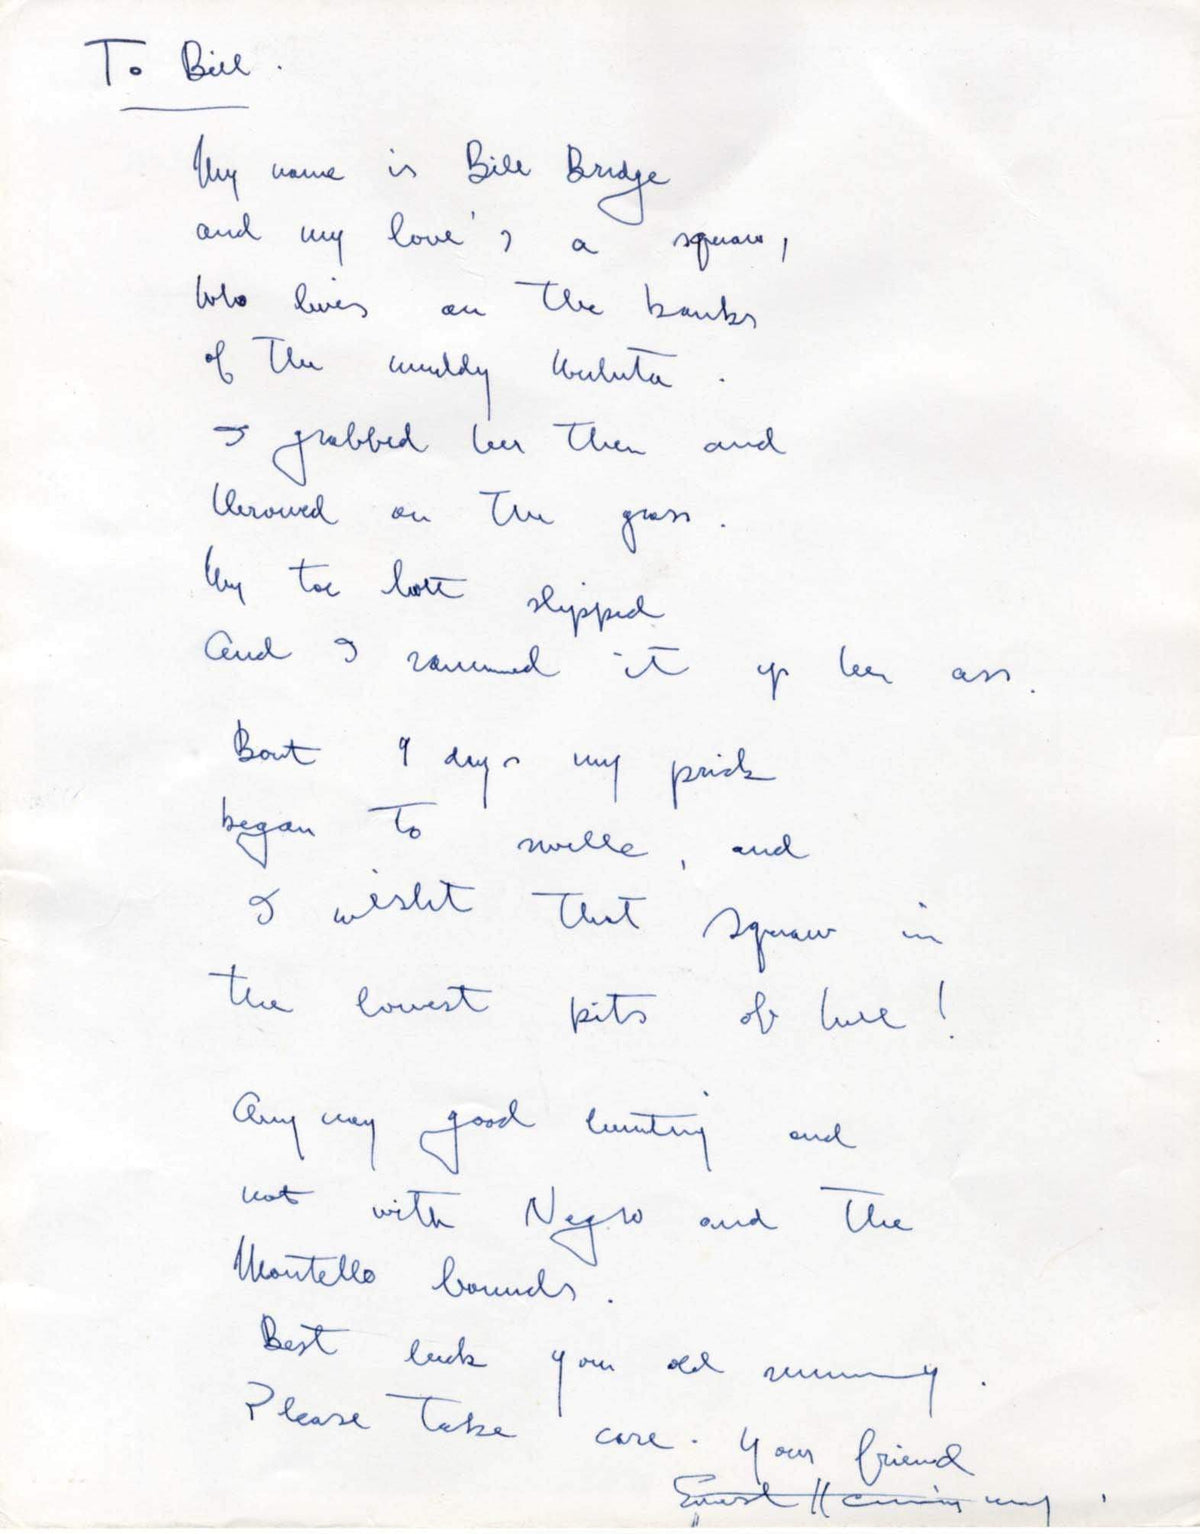 To Bill.
My name is Bill Bridge
and my love's a squaw,
Who lives on the banks
of the muddy
I grabbed her then and
throwed on the grass.
My toe holt slipped
And I rammed it up her ass.
Bout 9 days my prick
began to swelle, and
I wisht that squaw in
the lowest pits of hell!
Any way good hunting and
not with Negro and the
Montello hounds.
Best luck you old rummy.
Please take care. Your friend
Ernest Hemingway.